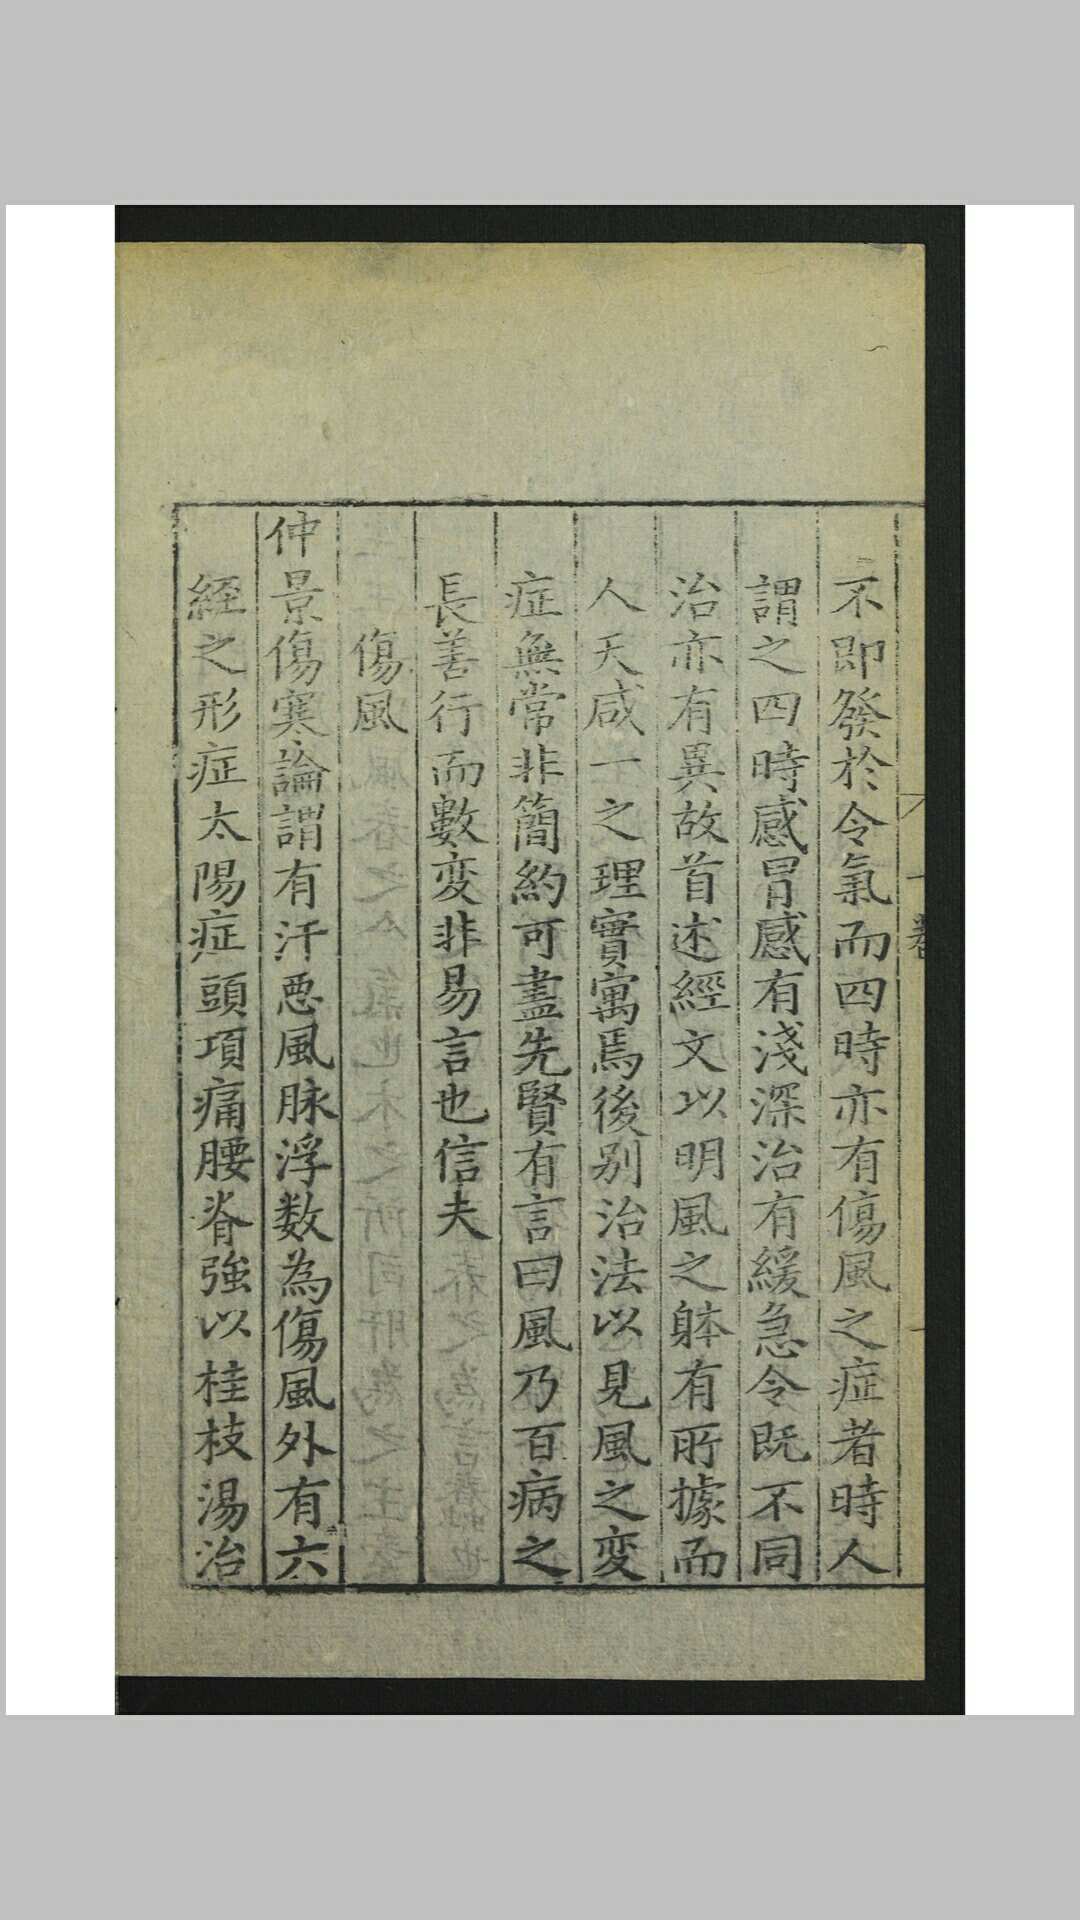 不即發於令氣而四時亦有傷風之症者時人
謂之四時感冐感有淺深治有緩急令既不同
治亦有異故首述經文以明風之躰有所據而
人天咸一之理實寓焉後别治法以見風之変
症無常非簡約可盡先賢有言曰風乃百病之
長善行而數変非易言也信夫
傷風
仲景傷寒論謂有汗悪風脉浮数為傷風外有六
経之形症太陽症頭項痛腰脊強以桂枝湯治